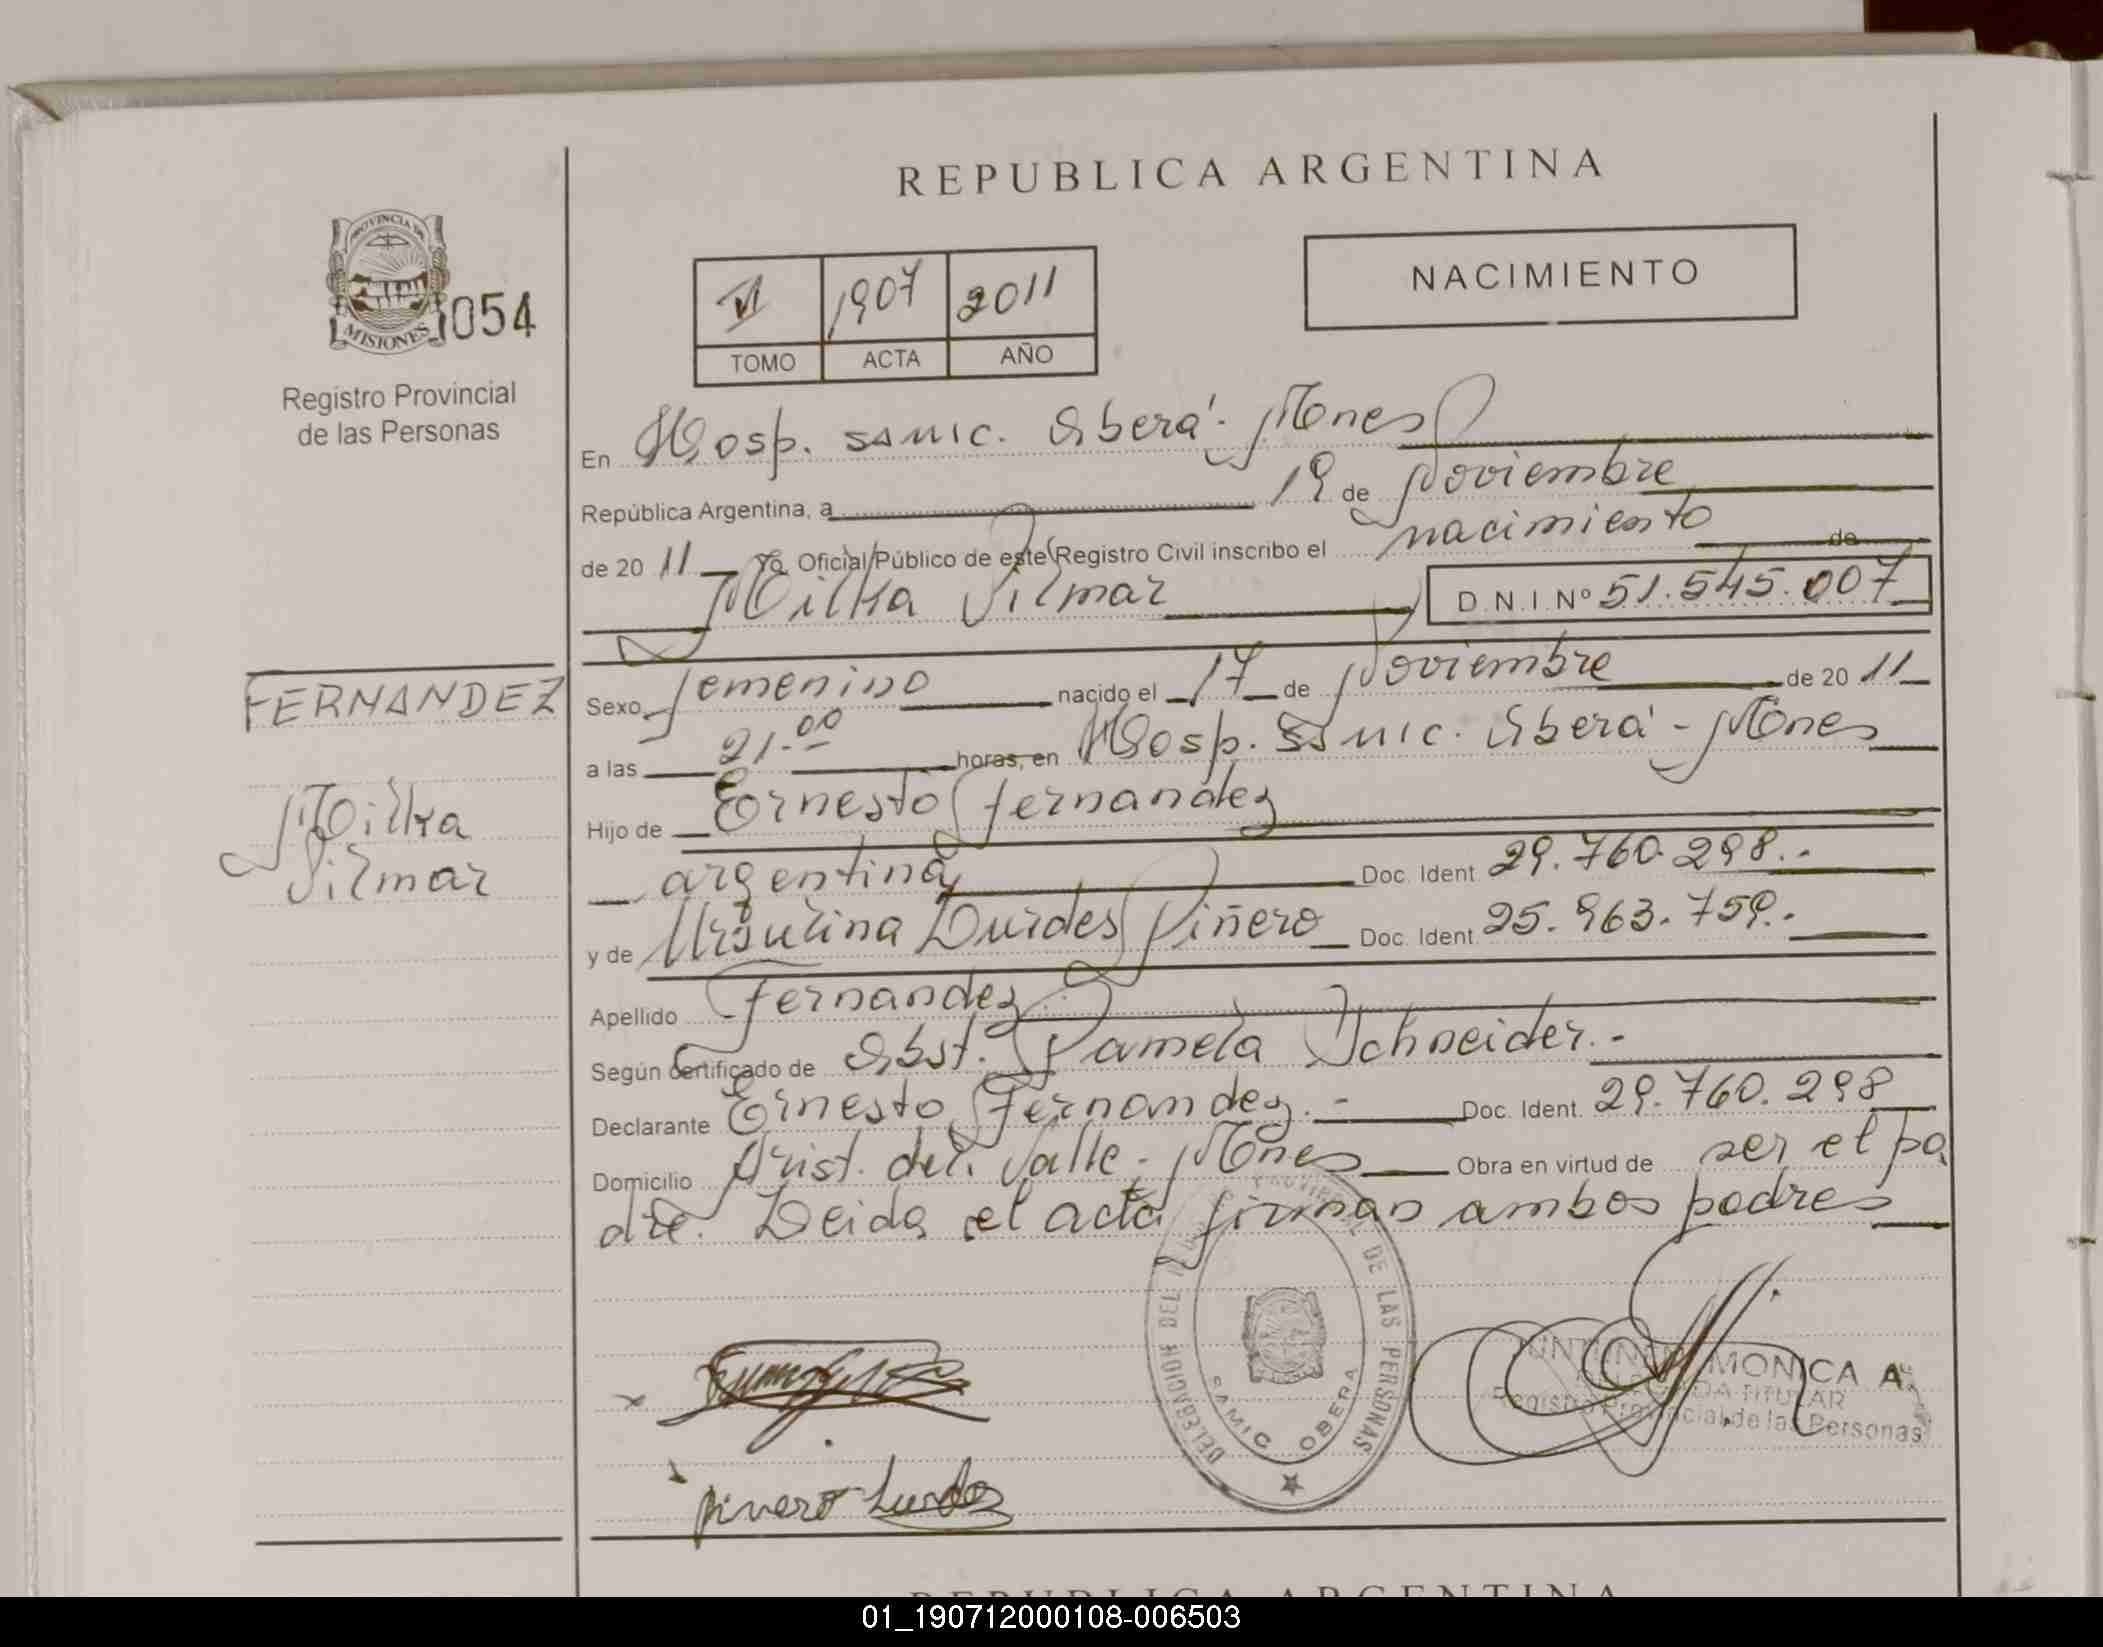 REPUBLICA ARGENTINA
PROVINCIA DE
MISIONES
054
Registro Provincial
de las Personas
VI 1907 2011
TOMO ACTA AÑO
NACIMIENTO
En Hosp. SAMIC. Oberá - Mnes
República Argentina, a 19 de Noviembre
de 20 11 Yo Oficial Público de este Registro Civil inscribo el nacimiento de
Milka Vilmar D.N.I. Nº 51.545.007
FERNANDEZ
Milka
Vilmar
Sexo femenino nacido el 17 de Noviembre de 20 11
a las 21.00 horas, en Hosp. SAMIC. Oberá - Mnes
Hijo de Ernesto Fernandez
argentina Doc. Ident 29.760.298.-
y de Ursulina Lurdes Piñero Doc. Ident 25.963.759.-
Apellido Fernandez
Según certificado de Obst. Pamela Schneider.-
Declarante Ernesto Fernandez.- Doc. Ident. 29.760.298
Domicilio Arist. del Valle - Mnes Obra en virtud de ser el pa
dre. Leida el acta firman ambos padres
DELEGACION DEL PROVINCIAL DE LAS PERSONAS
SAMIC OBERA
MONICA A.
TITULAR
Registro Provincial de las Personas
Pinero Lurdes
REPUBLICA ARGENTINA
01_190712000108-006503